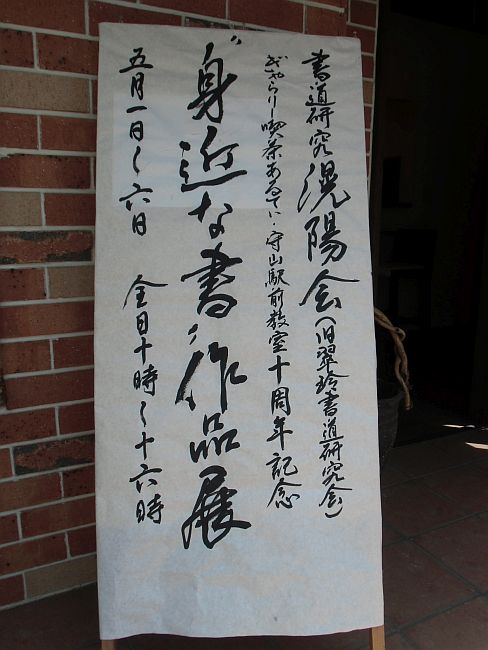 書道研究滉陽会(旧翠玲書道研究会)
ぎゃらりー喫茶あるてい・守山駅前教室十周年記念
"身近な書"作品展
五月一日〜六日 全日十時〜十六時